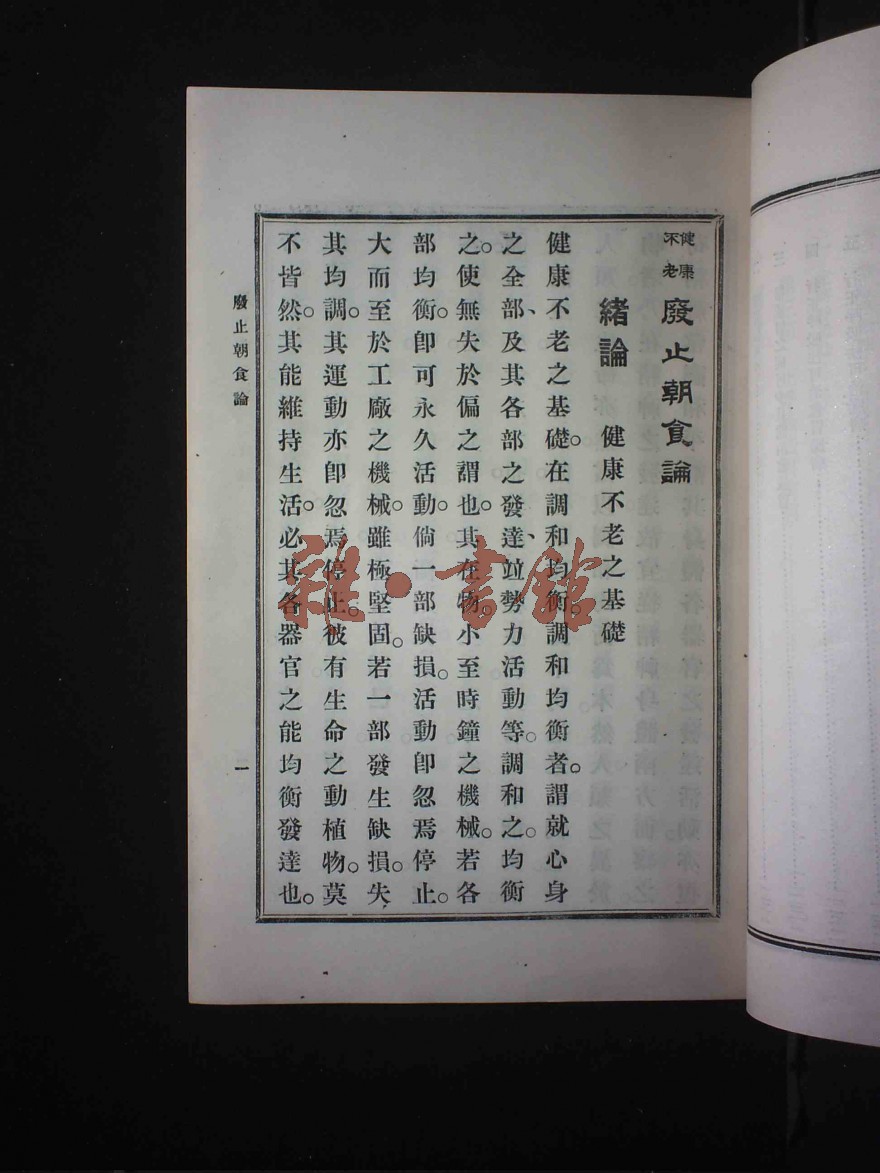 健康不老 廢止朝食論
緒論 健康不老之基礎
健康不老之基礎。在調和均衡。調和均衡者。謂就心身
之全部、及其各部之發達、竝勢力活動等。調和之。均衡
之。使無失於偏之謂也。其在物。小至時鐘之機械。若各
部均衡。卽可永久活動。倘一部缺損。活動卽忽焉停止。
大而至於工廠之機械。雖極堅固。若一部發生缺損。失
其均調。其運動亦卽忽焉停止。彼有生命之動植物。莫
不皆然。其能維持生活。必其各器官之能均衡發達也。
廢止朝食論
一
雜·書館